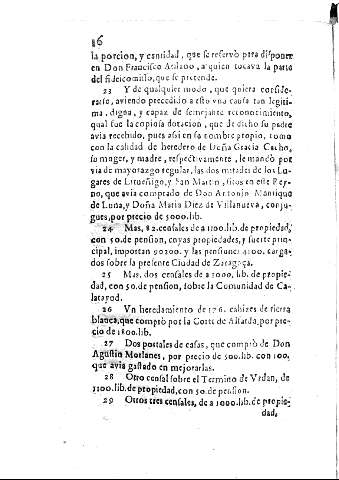 16
la porcion, y cantidad, que se reservò para disponer
en Don Francisco Atilano, a quien tocava la parte
del fideicomisso, que se pretende.
23 Y de qualquier modo, que quiera conside-
rarse, aviendo precedido a esto vna causa tan legiti-
ma, digna, y capaz de semejante reconocimiento,
qual fue la copiosa dotacion, que de dicho su padre
avia recebido, pues assi en su nombre propio, como
con la calidad de heredero de Doña Gracia Cacho,
su muger, y madre, respectivamente, le mandò por
via de mayorazgo regular, las dos mitades de los Lu-
gares de Litueñigo, y San Martin, sitos en este Rey-
no, que avia comprado de Don Antonio Manrique
de Luna, y Doña Maria Diez de Villanueva, conju-
gues, por precio de 5000. lib.
24 Mas, 82. censales de a 1100. lib. de propiedad,
con 50. de pension, cuyas propiedades, y suerte prin-
cipal, importan 90200. y las pensiones 4100. carga-
dos sobre la presente Ciudad de Zaragoça.
25 Mas dos censales de a 1000. lib. de propie-
dad, con 50. de pension, sobre la Comunidad de Ca-
latayud.
26 Vn heredamiento de 176. cahizes de tierra
blanca, que comprò por la Corte de Alfarda, por pre-
cio de 1800. lib.
27 Dos postales de casas, que comprò de Don
Agustin Morlanes, por precio de 500. lib. con 100.
que avia gastado en mejorarlas.
28 Otro censal sobre el Termino de Vrdan, de
1100. lib. de propiedad, con 50. de pension.
29 Otros tres censales, de a 1000. lib. de propie-
dad,